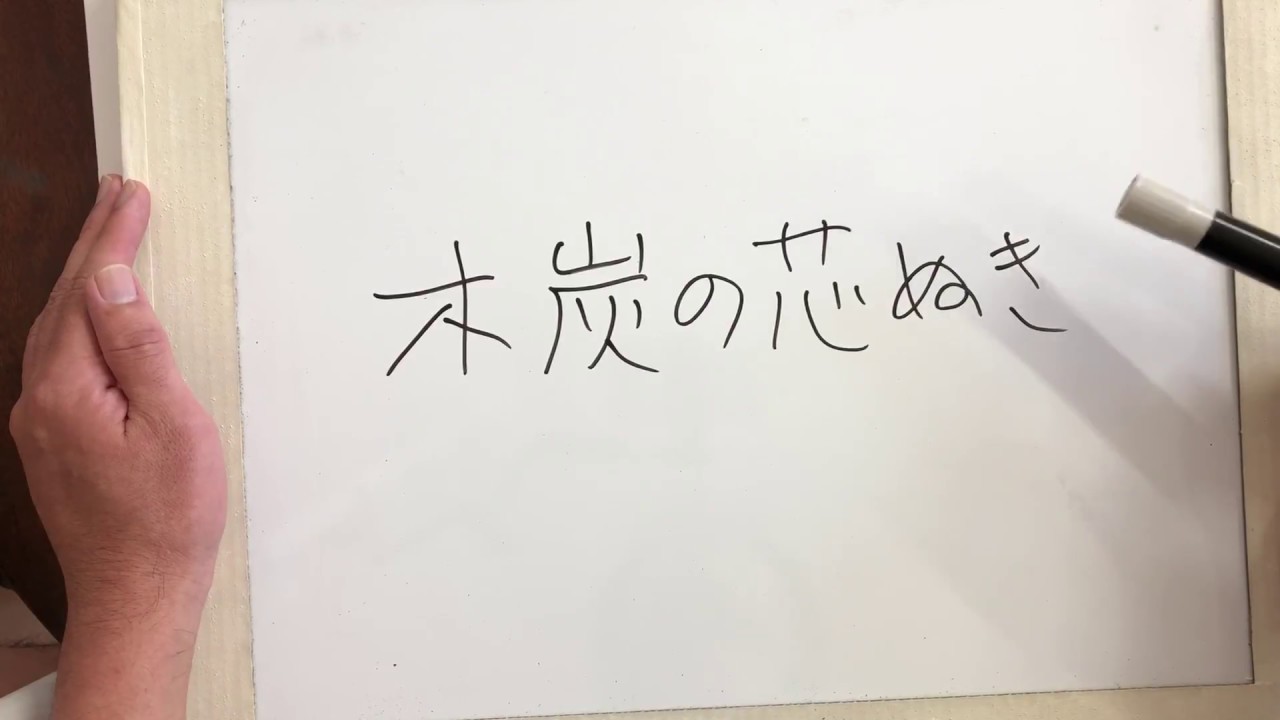 木炭の芯ぬき